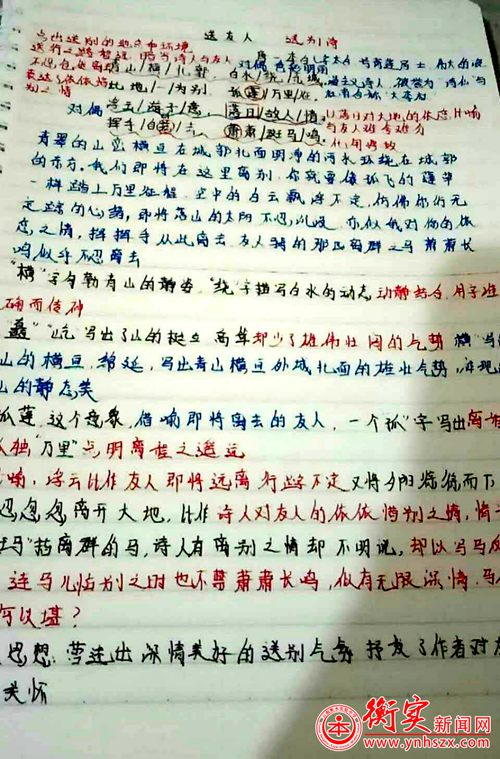 送友人 送别诗
写出送别的地点和环境
青山/横/北郭, 白水/绕/东城
此地/一/为别, 孤蓬/万里/征
对偶 浮云/游子/意, 落日/故人/情
挥手/自兹/去, 萧萧/班马/鸣
青翠的山峦横亘在城郭北面明净的河水环绕在城郭
的东方。我们即将在这里离别,你就要像孤飞的蓬草
一样踏上万里征程。空中的白云飘浮不定,仿佛你行无
定踪的心绪,即将落山的太阳不忍沉没,亦似我对你的依
恋之情,挥挥手从此离去,友人骑的那匹离群之马萧萧长
鸣似乎不忍离去
"横"字勾勒青山的静姿,"绕"字描写白水的动态动静结合,用字准
确而传神
"矗""屹"写出了山的挺立高耸却少了雄伟壮阔的气势"横"写
山的横亘,绵延,写出青山横亘外城北面的雄壮气势,
山的静态美
孤蓬,这个意象,借喻即将离去的友人,一个"孤"字写出离
孤独"万里"点明离程之遥远
喻:浮云比作友人即将远离行踪不定又将夕阳徐徐而下
忍忽忽离开大地,比作诗人对友人的依依惜别之情,情
马"指离群的马,诗人有离别之情却不明说,却以写马
连马儿临别之时也不禁萧萧长鸣,似有无限深情,马
何以堪?
思想:营造出深情美好的送别气氛抒发了作者对友
关怀
衡实新闻网
www.ynhszx.com